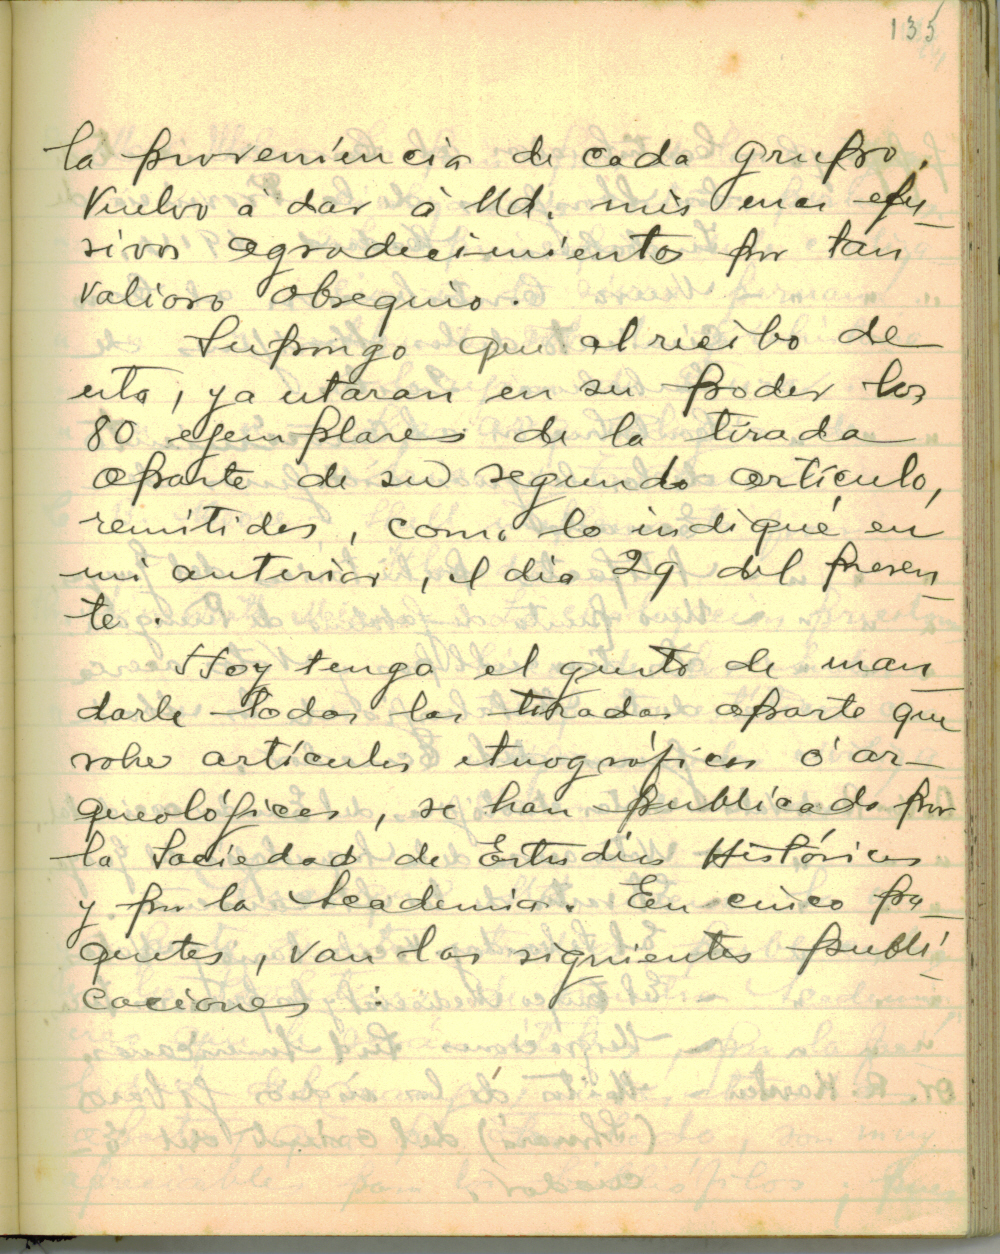 135
la proveniencia de cada grupo.
Vuelvo à dar à Ud. mis mas efu_
sivos agradecimientos por tan
valioso obsequio.
Supongo que al recibo de
esta, ya estaran en su poder los
80 ejemplares de la tirada
aparte de su segundo artículo,
remitidos, como lo indiqué en
mi anterior, el dia 29 del presen_
te.
Hoy tengo el gusto de man_
darle todas las tiradas aparte que
sobre artículos etnográficos ó ar_
queológicos, se han publicado por
la Sociedad de Estudios Históricos
y por la Academia. En cinco pa_
quetes, van las siguientes publi_
caciones :